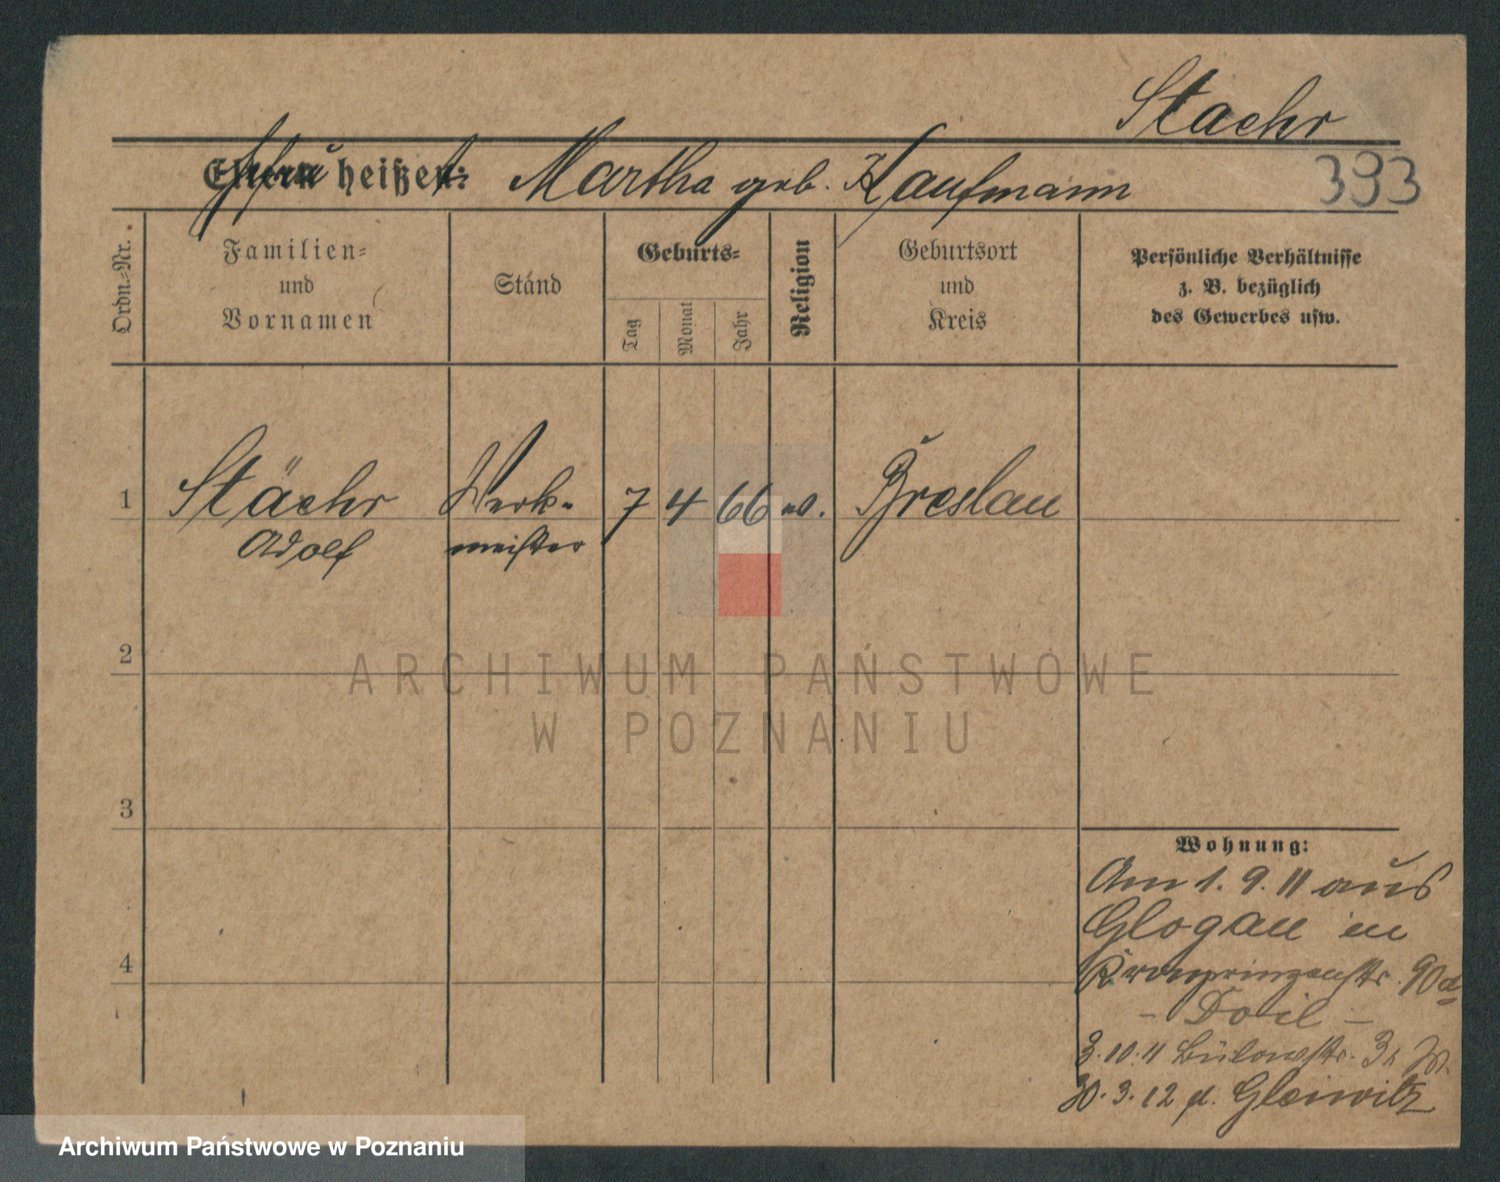 Staehr
Frau heißt: Martha geb. Kaufmann 393
Ordn.-Nr.
Familien-
und
Vornamen
Stand
Geburts-
Tag
Monat
Jahr
Religion
Geburtsort
und
Kreis
Persönliche Verhältnisse
z. B. bezüglich
des Gewerbes usw.
1 Stäehr Werk- 7 4 66 ev. Breslau
Adolf meister
2
ARCHIWUM PAŃSTWOWE
W POZNANIU
3
Wohnung:
Am 1. 9. 11 aus
Glogau in
4
Kronprinzenstr. 90a
3. 10. 11 Bülowstr.
30. 3. 12 n. Gleiwitz
Archiwum Państwowe w Poznaniu